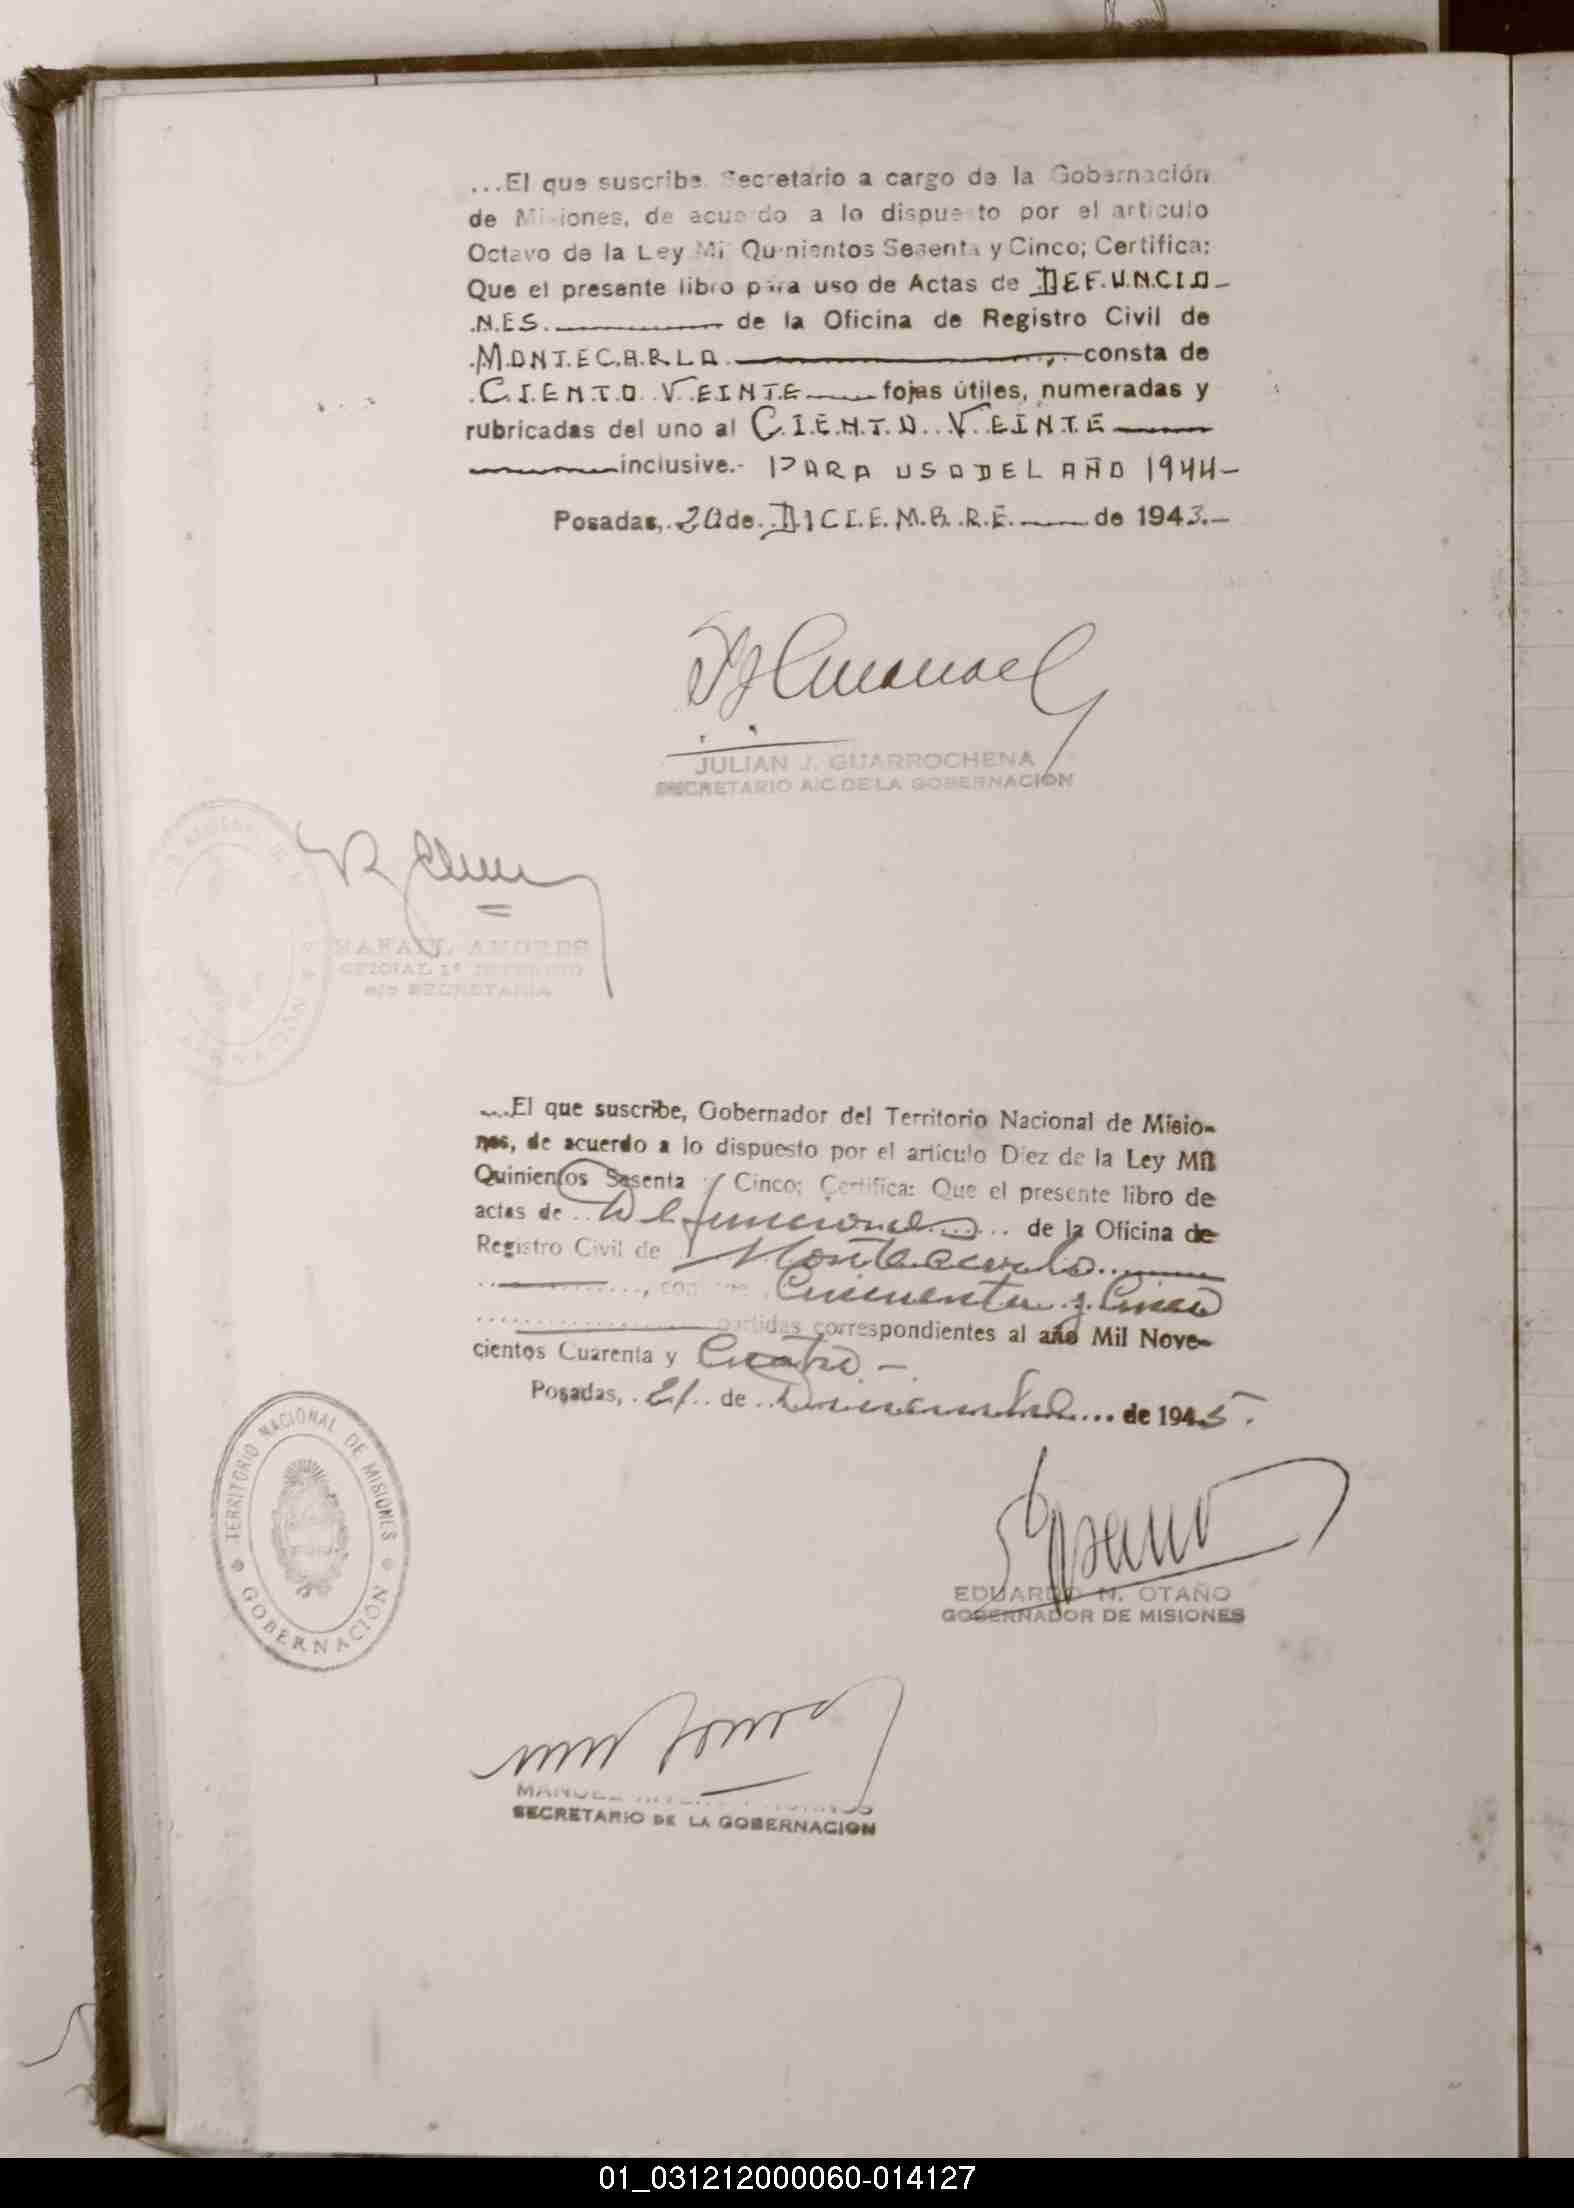 ...El que suscribe, Secretario a cargo de la Gobernación
de Misiones, de acuerdo a lo dispuesto por el artículo
Octavo de la Ley Mil Quinientos Sesenta y Cinco; Certifica:
Que el presente libro para uso de Actas de DEFUNCIO-
NES. de la Oficina de Registro Civil de
MONTECARLO. consta de
CIENTO VEINTE fojas útiles, numeradas y
rubricadas del uno al CIENTO VEINTE
inclusive.- PARA USO DEL AÑO 1944-
Posadas, 20 de DICIEMBRE. de 1943.-
JULIAN J. GUARROCHENA
SECRETARIO A/C DE LA GOBERNACION
RAFAEL ANDRES
OFICIAL 1º
a/c SECRETARIA
....El que suscribe, Gobernador del Territorio Nacional de Misio-
nes, de acuerdo a lo dispuesto por el artículo Diez de la Ley Mil
Quinientos Sesenta y Cinco; Certifica: Que el presente libro de
actas de .. Defunciones ... de la Oficina de
Registro Civil de Montecarlo
, contiene Cincuenta y Cinco
partidas correspondientes al año Mil Nove-
cientos Cuarenta y Cuatro.-
Posadas, 21 de Diciembre ... de 1945.
TERRITORIO NACIONAL DE MISIONES
GOBERNACIÓN
EDUARDO N. OTAÑO
GOBERNADOR DE MISIONES
MANUEL
SECRETARIO DE LA GOBERNACION
01_031212000060-014127